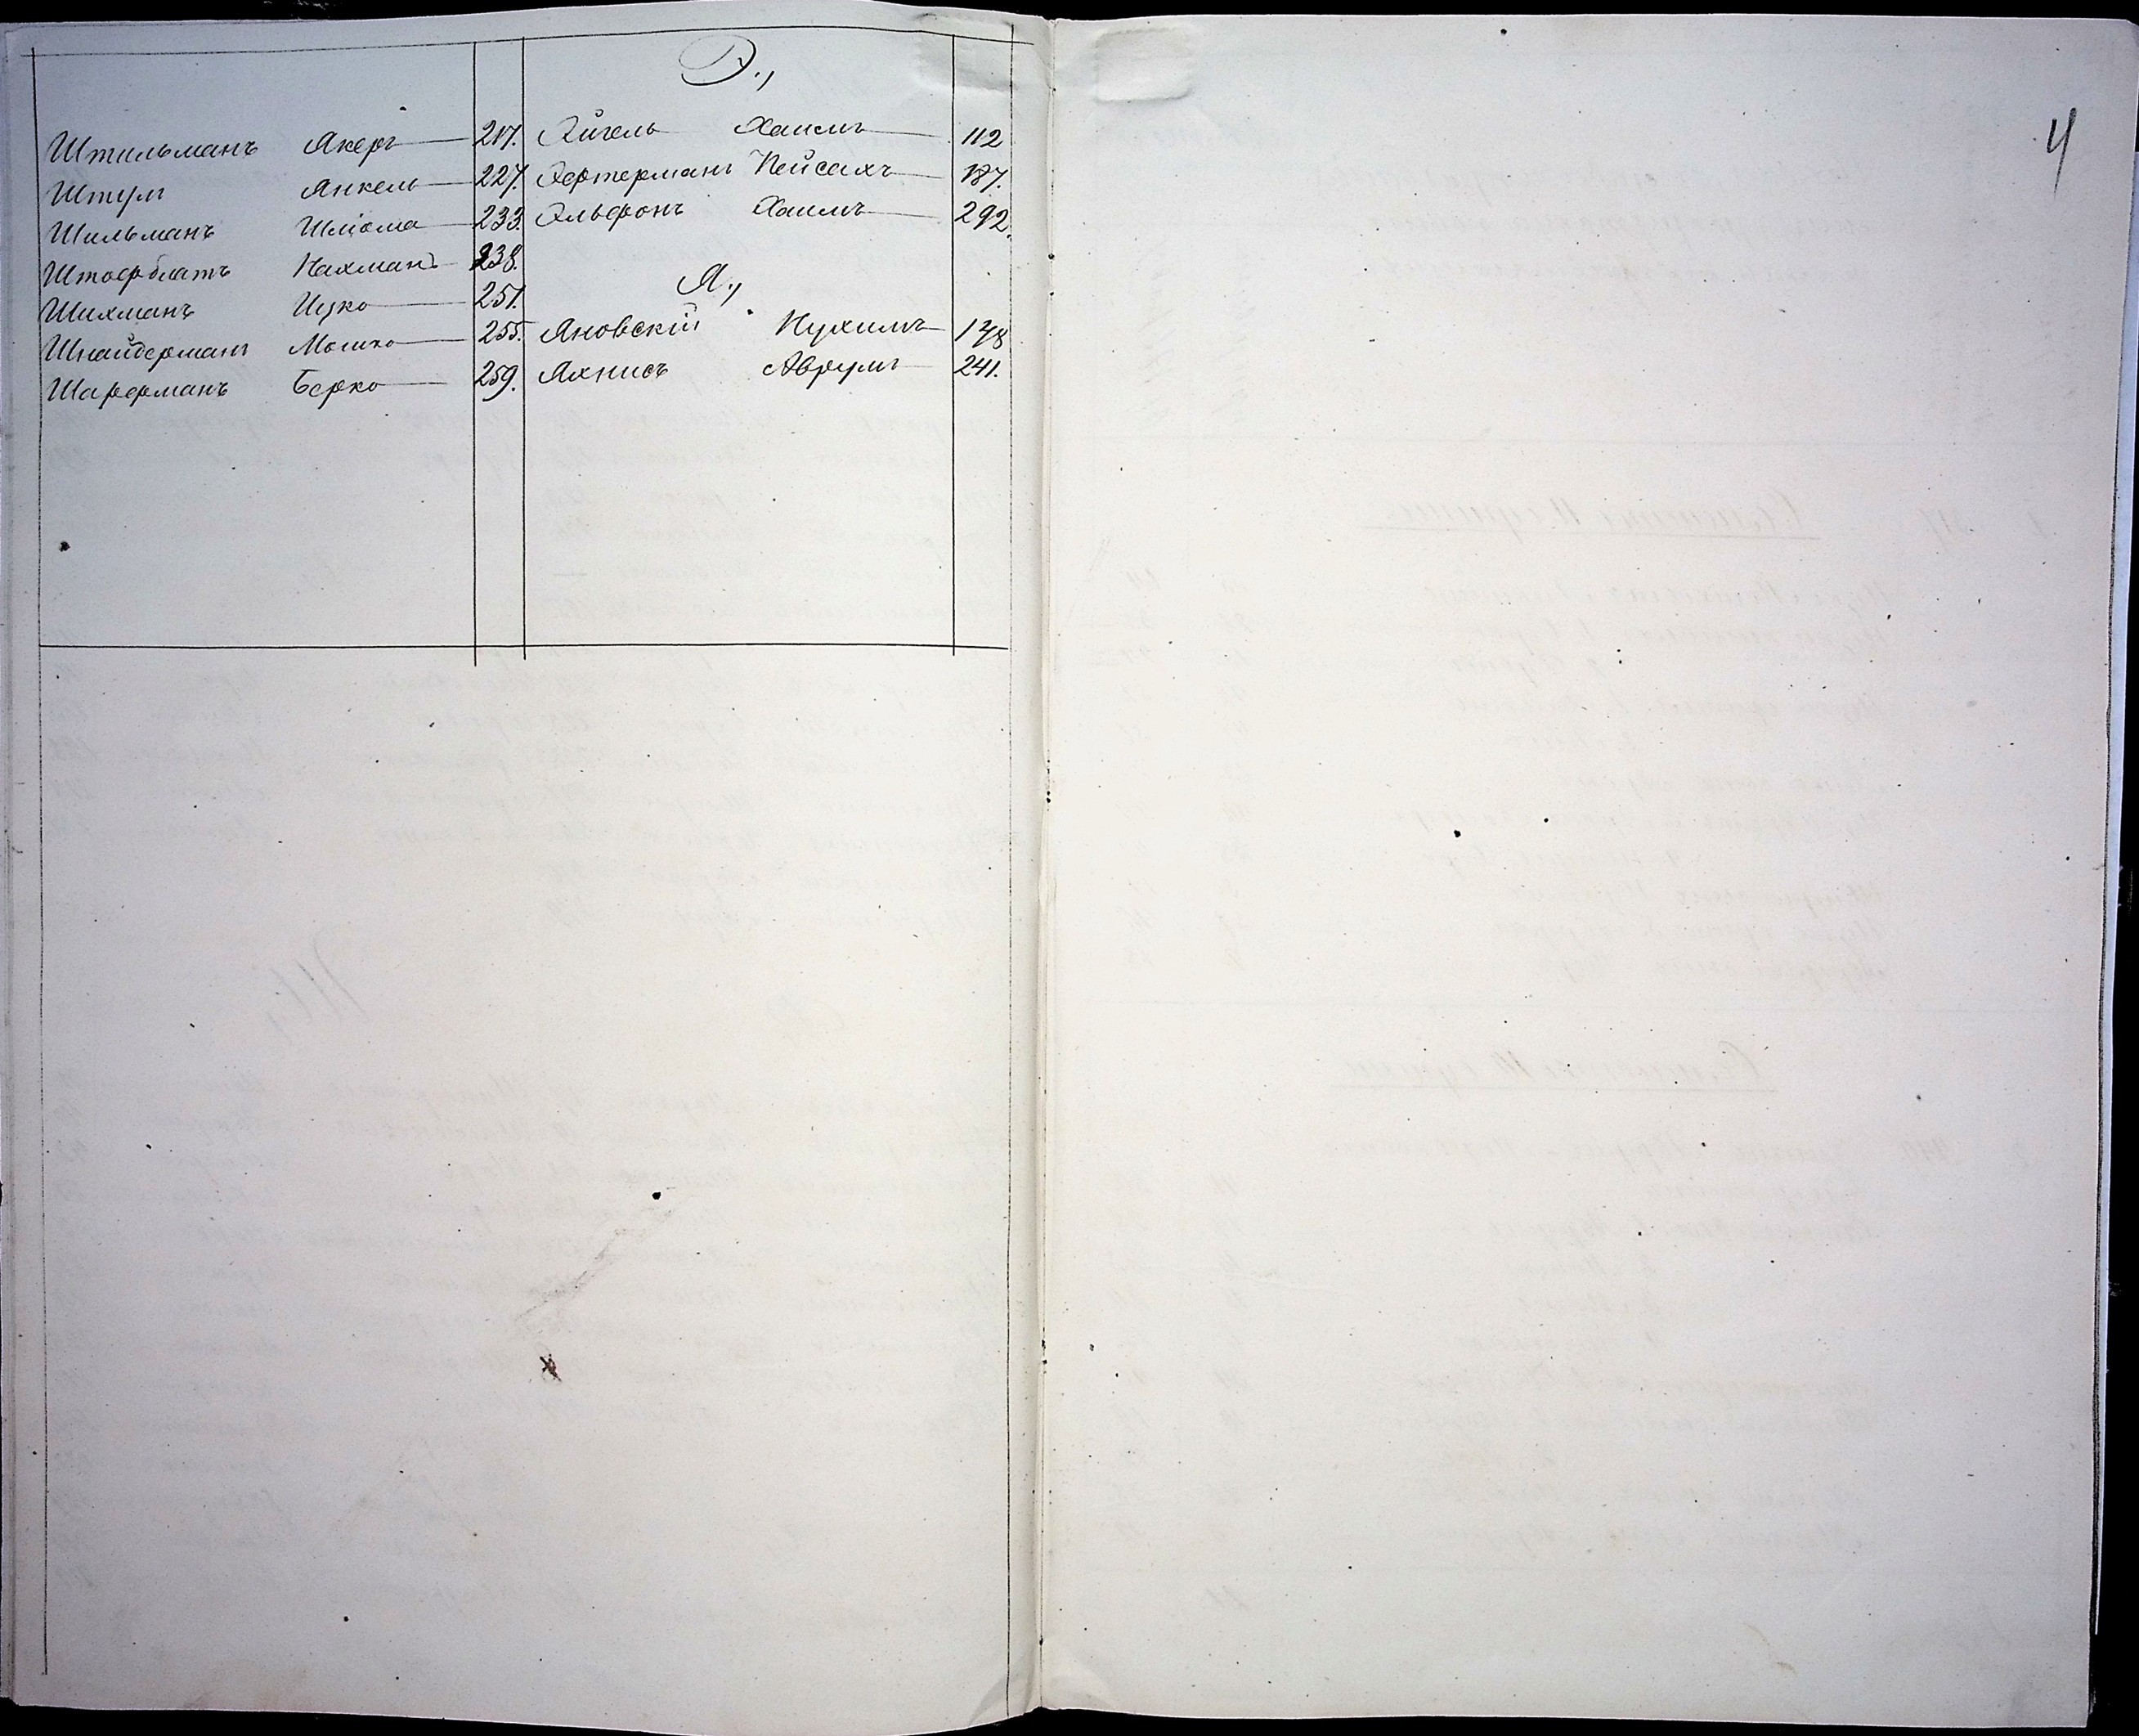 Штильманъ Акеръ 217.
Штурм Янкель 227.
Шильманъ Шліома 233.
Штофблатъ Нахманъ 238.
Шихманъ Ицко 251.
Шнайдерманъ Мошко 255.
Шарфманъ Берко 259.
Э.,
Эйгель Хаимъ 112
Эфтерманъ Пейсахъ 187.
Эльфонъ Хаимъ 292.
Я.,
Яновскій Нухимъ 148
Яхнисъ Аврумъ 241.
4